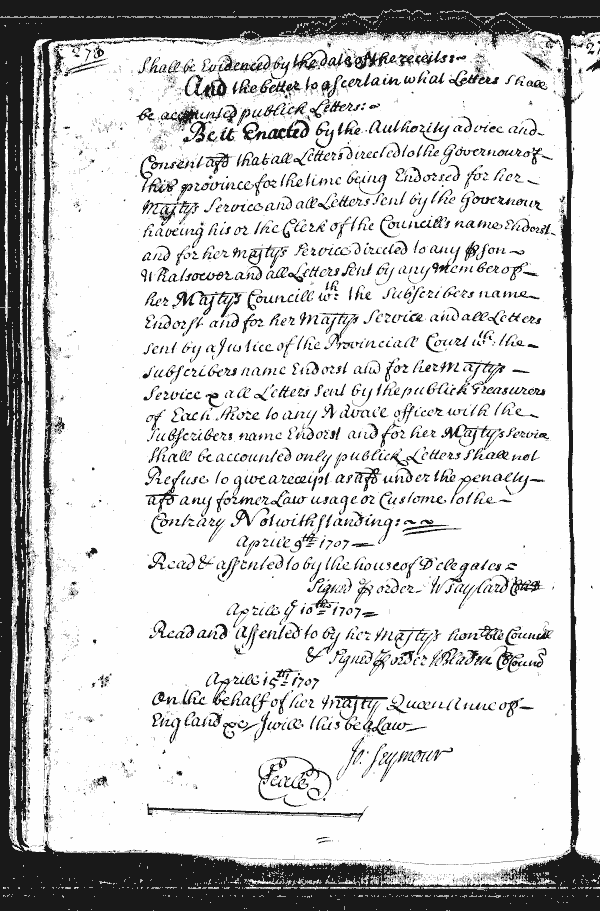 278
Shall be Evidenced by the date of the receits:~
And the better to ascertain what Letters Shall
be accounted publick Letters:~
Be it Enacted by the Authority advice and
Consent afd that all Letters directed to the Governour of
this province for the time being Endorsed for her
Majtys Service and all Letters Sent by the Governour
haveing his or the Clerk of the Councills name Endorst
and for her Majtys Service directed to any pson
Whatsoever and all Letters Sent by any member of
her Majtys Councill wth the Subscribers name
Endorst and for her Majtys Service and all Letters
Sent by a Justice of the Provinciall Court wth the
Subscribers name Endorst and for her Majtys
Service & all Letters Sent by the publick Treasurers
of Each Shore to any Navale officer with the
Subscribers name Endorst and for her Majtys Service
Shall be accounted only publick Letters Shall not
Refuse to give a receipt as afd under the penalty
afd any former Law usage or Custome to the
Contrary Notwithstanding:~~
Aprile 9th 1707
Read & assented to by the house of Delegates
Signed p order W Taylard
Aprile y 10th 1707
Read and Assented to by her Majtys honble Councill
& Signed p order W Bladen Cl Council
Aprile 15th 1707
On the behalf of her Majty Queen Anne of
England &c I will this be a Law
Jo: Seymour
Seale